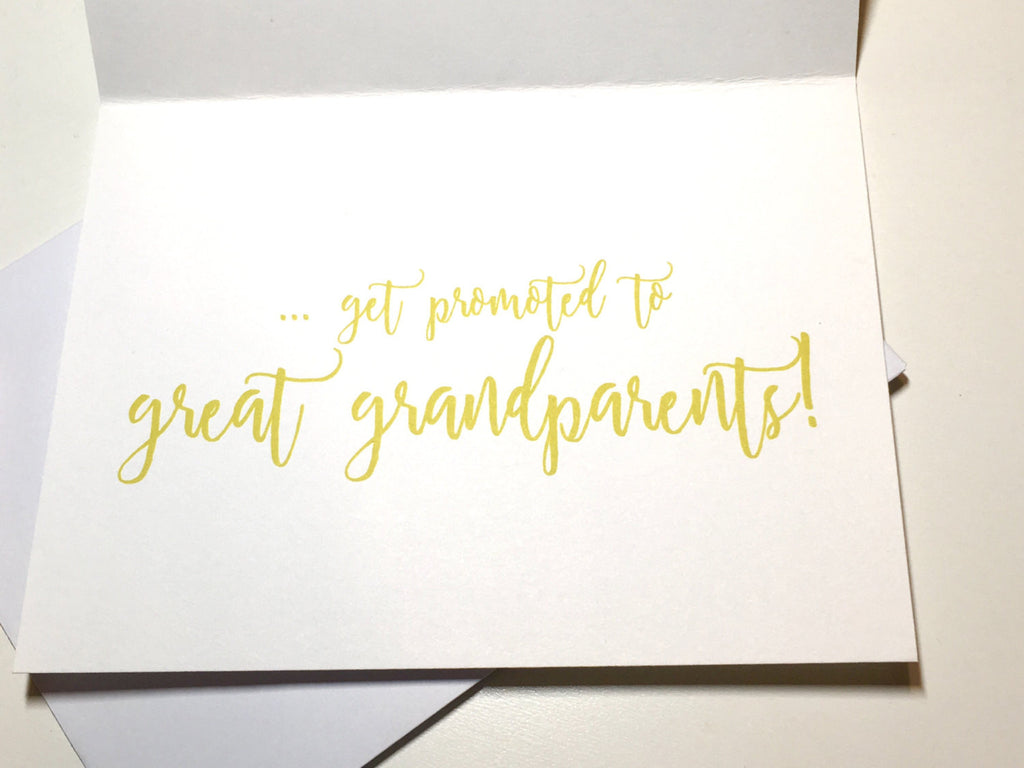 ... get promoted to
great grandparents!